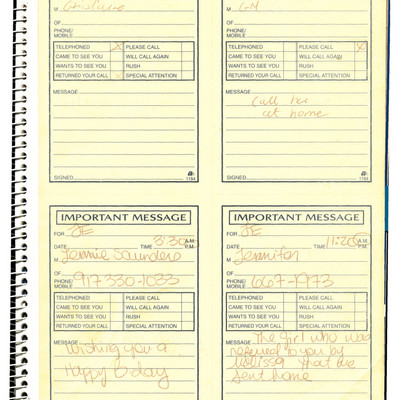 M
OF
PHONE/
MOBILE
TELEPHONED X PLEASE CALL
CAME TO SEE YOU WILL CALL AGAIN
WANTS TO SEE YOU RUSH
RETURNED YOUR CALL SPECIAL ATTENTION
MESSAGE
SIGNED 1184
M GM
OF
PHONE/
MOBILE
TELEPHONED PLEASE CALL X
CAME TO SEE YOU WILL CALL AGAIN
WANTS TO SEE YOU RUSH
RETURNED YOUR CALL SPECIAL ATTENTION
MESSAGE
Call her
at home
SIGNED 1184
IMPORTANT MESSAGE
FOR JE
DATE TIME 3:30 A.M.
P.M.
M Jennie Saunders
OF
PHONE/
MOBILE 917 330-1033
TELEPHONED PLEASE CALL
CAME TO SEE YOU WILL CALL AGAIN
WANTS TO SEE YOU RUSH
RETURNED YOUR CALL SPECIAL ATTENTION
MESSAGE
Wishing you a
Happy B-day
IMPORTANT MESSAGE
FOR JE
DATE TIME 11:20 A.M.
P.M.
M Jennifer
OF
PHONE/
MOBILE 667-1973
TELEPHONED PLEASE CALL
CAME TO SEE YOU WILL CALL AGAIN
WANTS TO SEE YOU RUSH
RETURNED YOUR CALL SPECIAL ATTENTION
MESSAGE The girl who was
referred to you by
Melissa that we
sent home